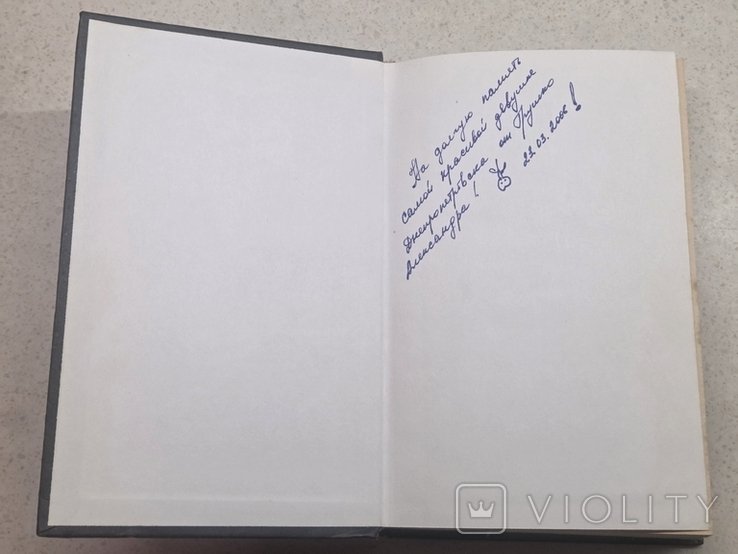 На долгую память
самой красивой девушке
Днепропетровска от
Александра!
23.03.2006!
VIOLITY